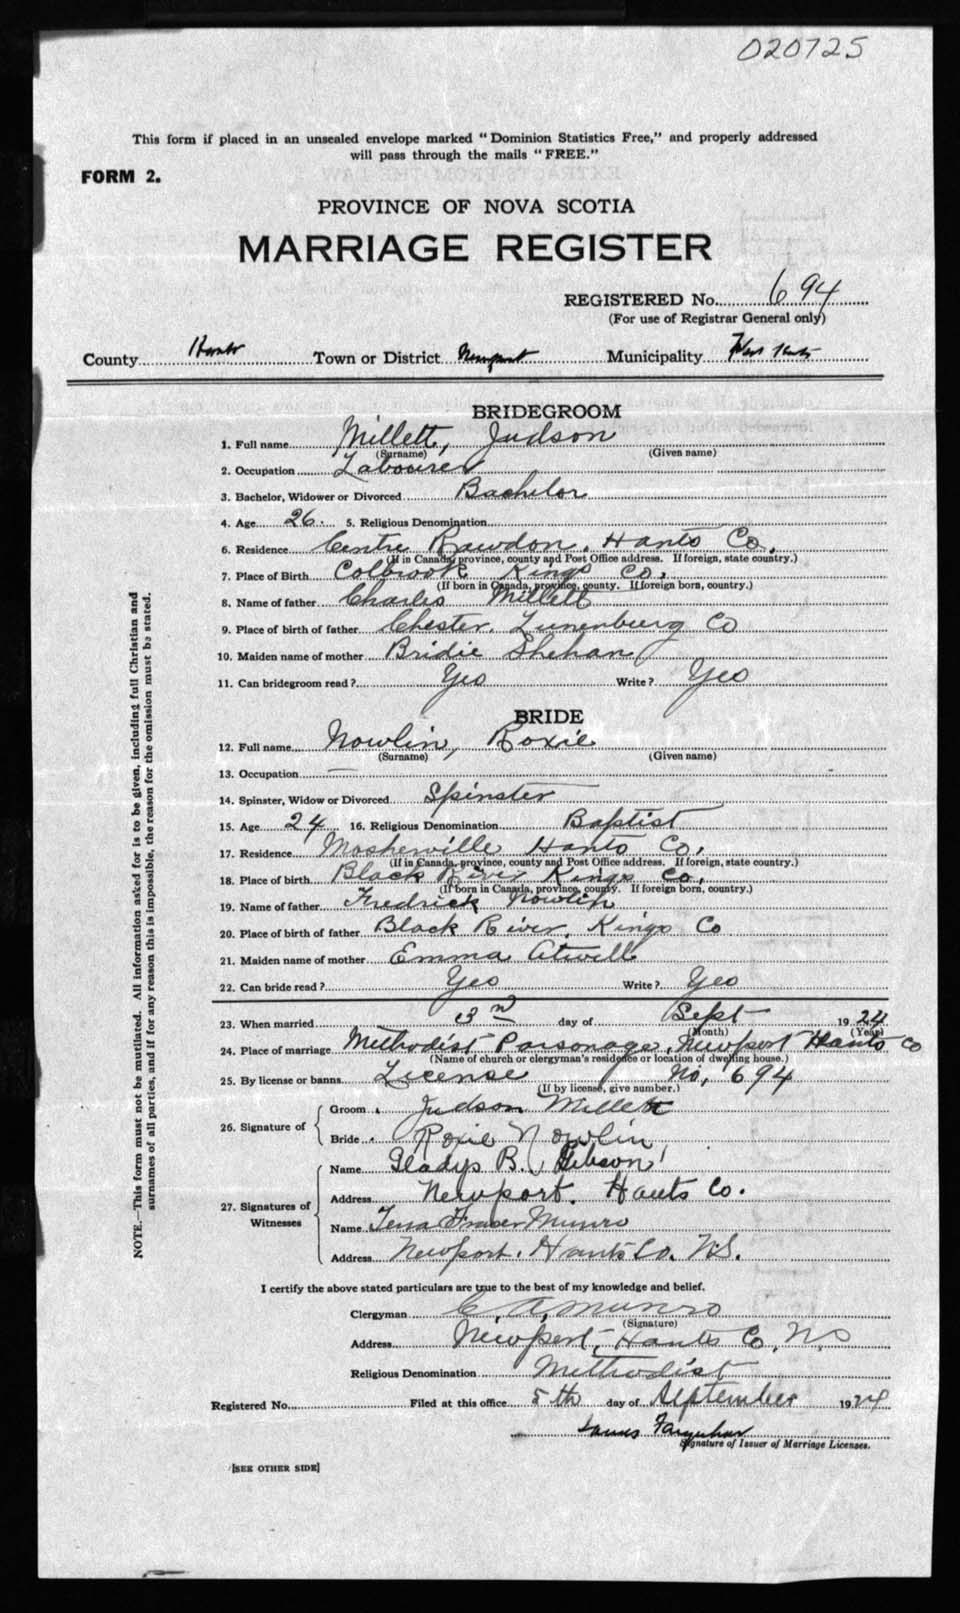 020725
This form if placed in an unsealed envelope marked "Dominion Statistics Free," and properly addressed
will pass through the mails "FREE."
FORM 2.
PROVINCE OF NOVA SCOTIA
MARRIAGE REGISTER
REGISTERED No. 694
(For use of Registrar General only)
County Hants Town or District Newport Municipality West Hants
BRIDEGROOM
1. Full name Millett, Judson
(Surname) (Given name)
2. Occupation Labourer
3. Bachelor, Widower or Divorced Bachelor
4. Age 26. 5. Religious Denomination
6. Residence Centre Rawdon, Hants Co.
(If in Canada, province, county and Post Office address. If foreign, state country.)
7. Place of Birth Colbrook Kings Co,
(If born in Canada, province, county. If foreign born, country.)
8. Name of father Charles Millett
9. Place of birth of father Chester, Lunenburg Co
10. Maiden name of mother Bridie Shehan
11. Can bridegroom read? Yes Write? Yes
BRIDE
12. Full name Nowlin, Roxie
(Surname) (Given name)
13. Occupation —
14. Spinster, Widow or Divorced Spinster
15. Age 24 16. Religious Denomination Baptist
17. Residence Mosherville Hants Co,
(If in Canada, province, county and Post Office address. If foreign, state country.)
18. Place of birth Black River Kings Co,
(If born in Canada, province, county. If foreign born, country.)
19. Name of father Fredrick Nowlin
20. Place of birth of father Black River, Kings Co
21. Maiden name of mother Emma Atwell
22. Can bride read? Yes Write? Yes
23. When married 3rd day of Sept 1924
(Month) (Year)
24. Place of marriage Methodist Parsonage, Newport Hants Co
(Name of church or clergyman's residence or location of dwelling house.)
25. By license or banns License No, 694
(If by license, give number.)
26. Signature of Groom Judson Millett
Bride Roxie Nowlin
27. Signatures of Witnesses
Name Gladys B. Gibson
Address Newport. Hants Co.
Name Tena Fraser Munro
Address Newport. Hants Co. N.S.
I certify the above stated particulars are true to the best of my knowledge and belief.
Clergyman C. A. Munro
(Signature)
Address Newport, Hants Co, N.S
Religious Denomination Methodist
Registered No. Filed at this office 5th day of September 1924
James Farquhar
Signature of Issuer of Marriage Licenses.
[SEE OTHER SIDE]
NOTE.—This form must not be mutilated. All information asked for is to be given, including full Christian and
surnames of all parties, and if for any reason this is impossible, the reason for the omission must be stated.